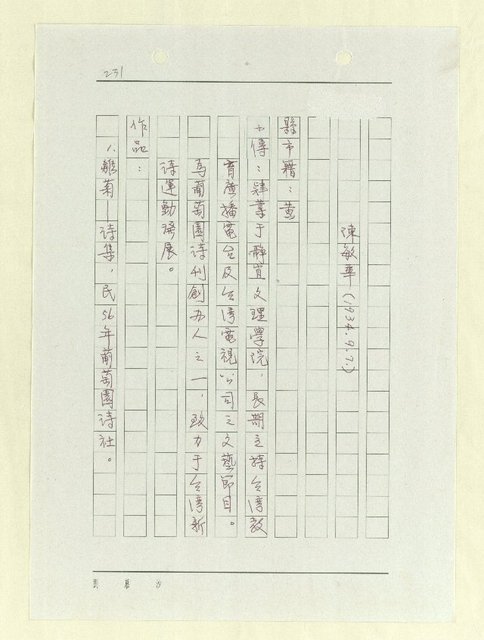 231
陳敏華(1934.9.7.)
縣市籍:黃
小傳:肄業于靜宜文理學院,長期主持台灣教
育廣播電台及台灣電視公司之文藝節目。
為葡萄園詩刊創办人之一,致力于台灣新
詩運動發展。
作品:
1.雛菊—詩集,民56年葡萄園詩社。